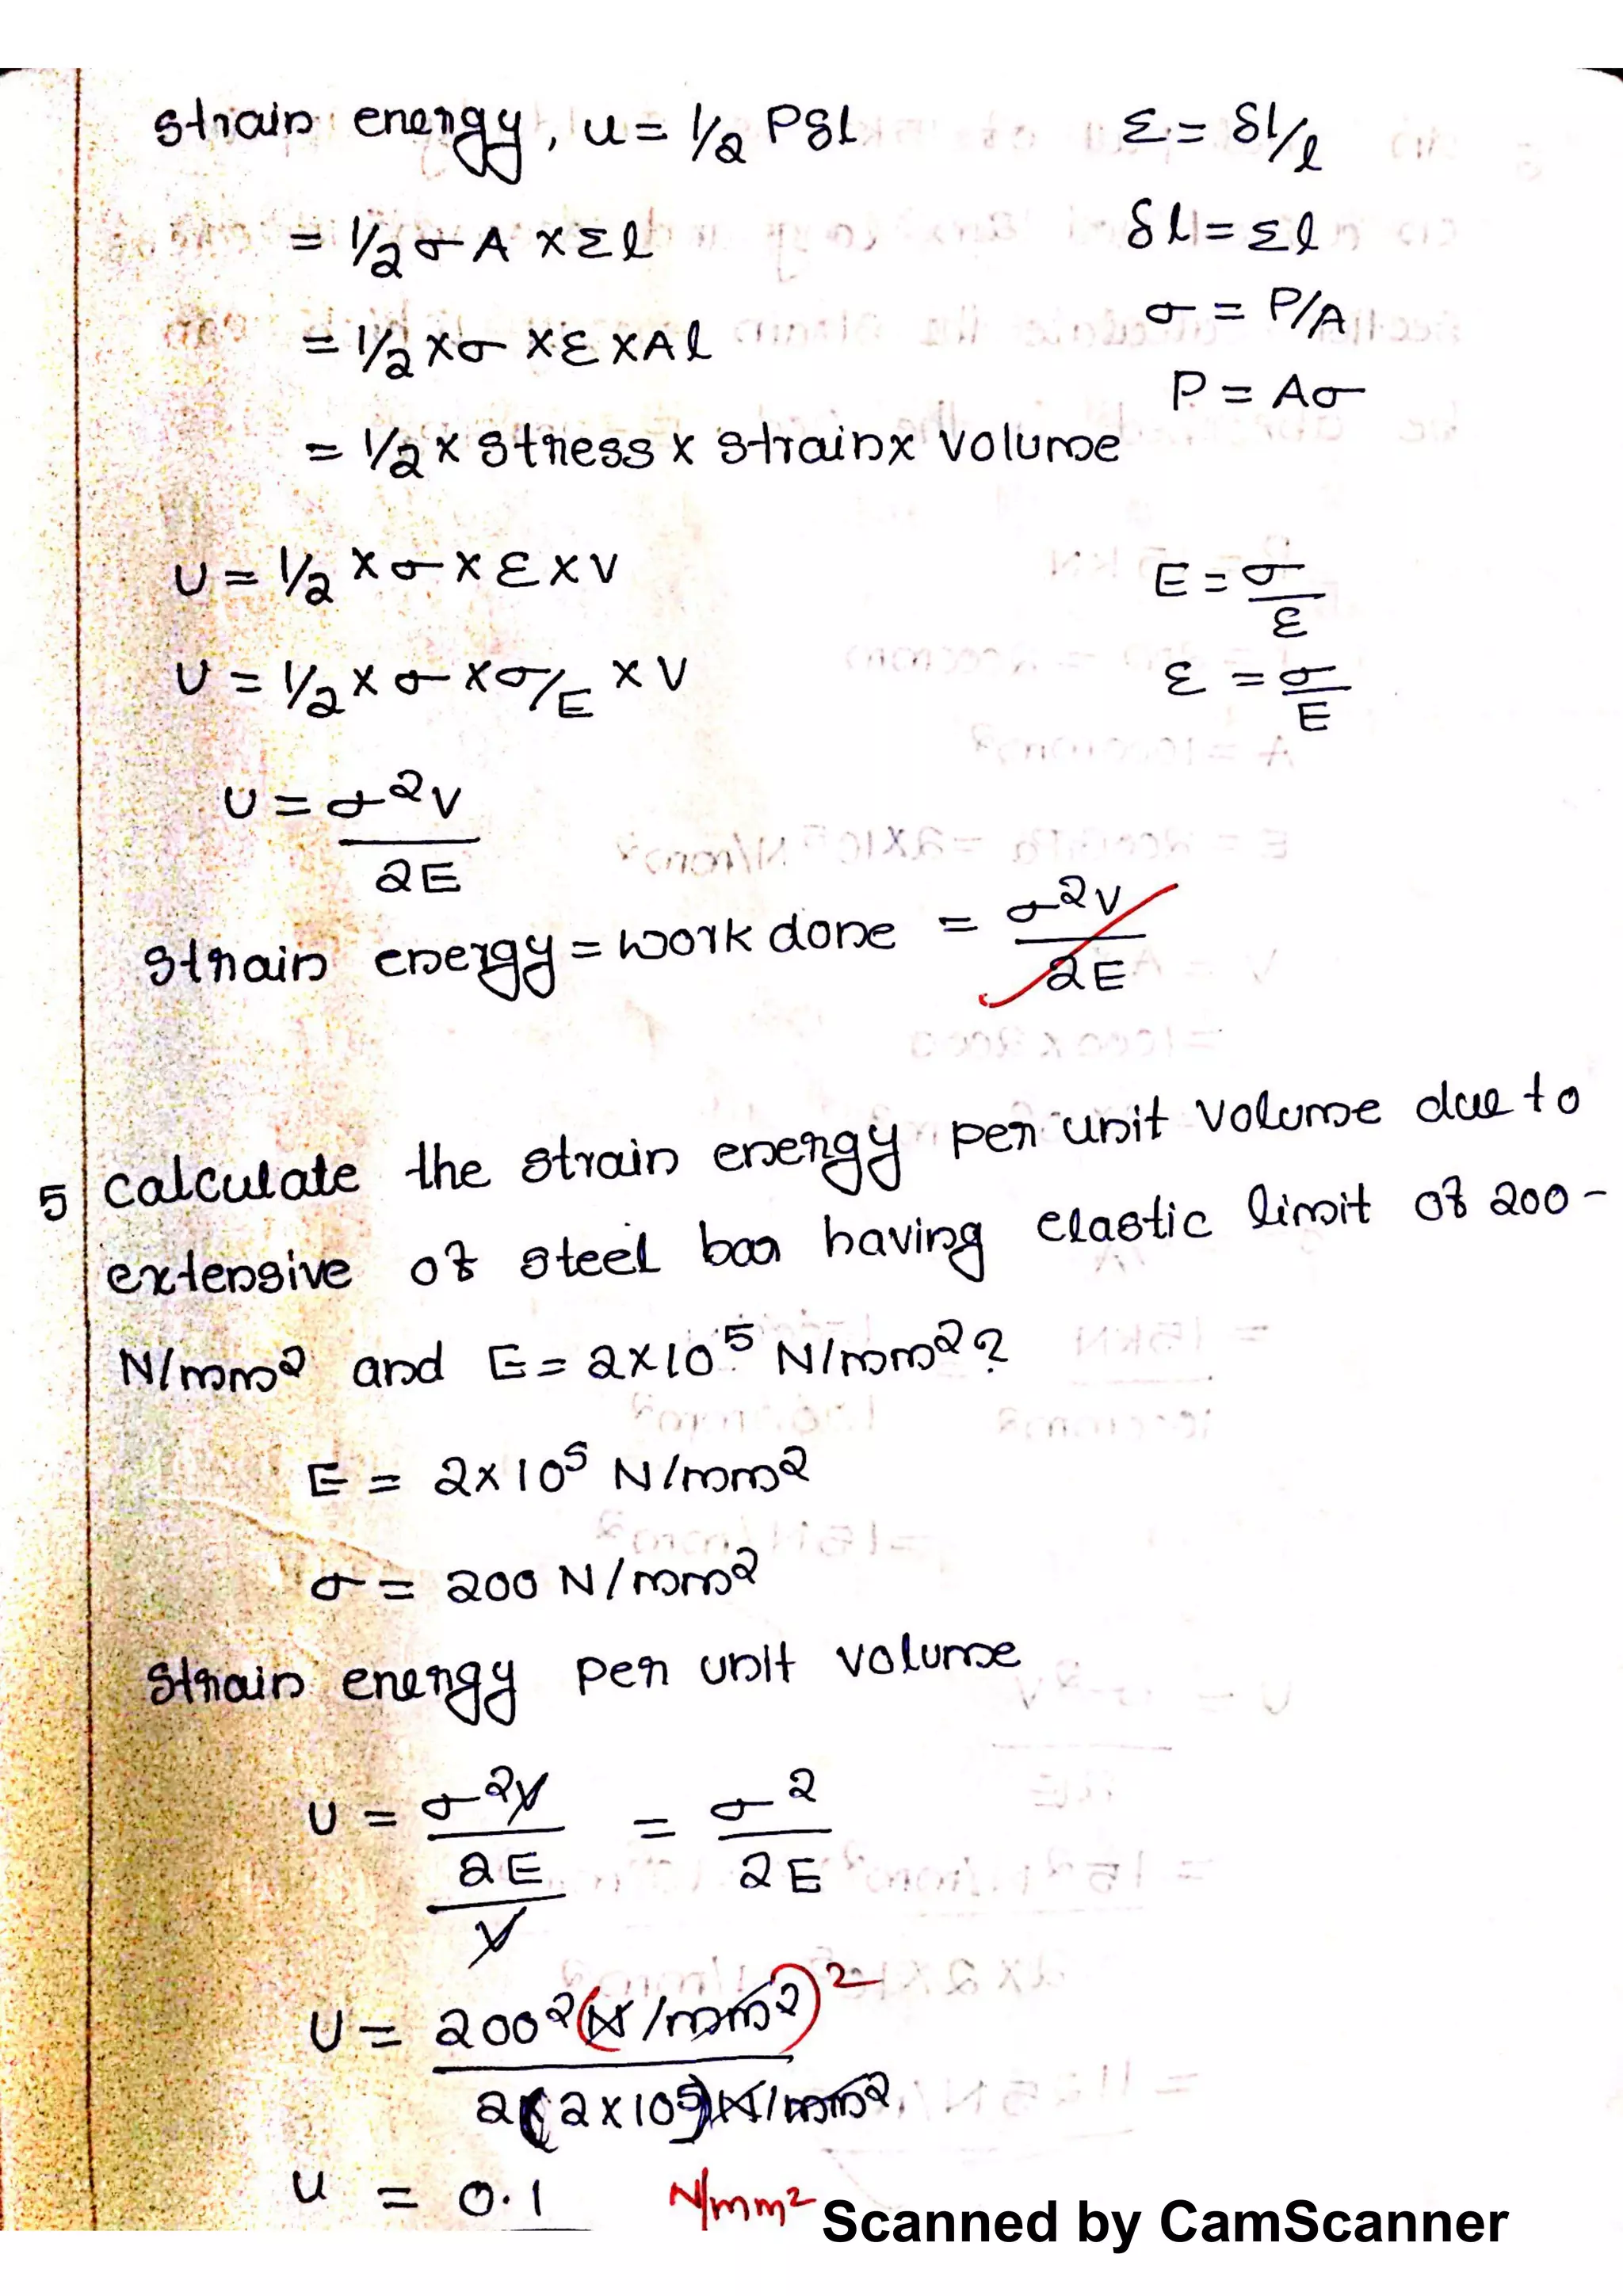 strain energy, u = 1/2 Pδl
ε = δl/l
= 1/2 σ A × εl
δl = εl
σ = P/A
= 1/2 × σ × ε × Al
P = Aσ
= 1/2 × stress × strain × volume
U = 1/2 × σ × ε × V
E = σ/ε
U = 1/2 × σ × σ/E × V
ε = σ/E
U = σ²V/2E
strain energy = work done = σ²V/2E
5 calculate the strain energy per unit volume due to
extensive of steel bar having elastic limit of 200-
N/mm² and E = 2×10⁵ N/mm²?
E = 2×10⁵ N/mm²
σ = 200 N/mm²
strain energy per unit volume
U = σ²V/2E/V = σ²/2E
U = 200²(N/mm²)²
2(2×10⁵)N/mm²
u = 0.1 N/mm²
Scanned by CamScanner